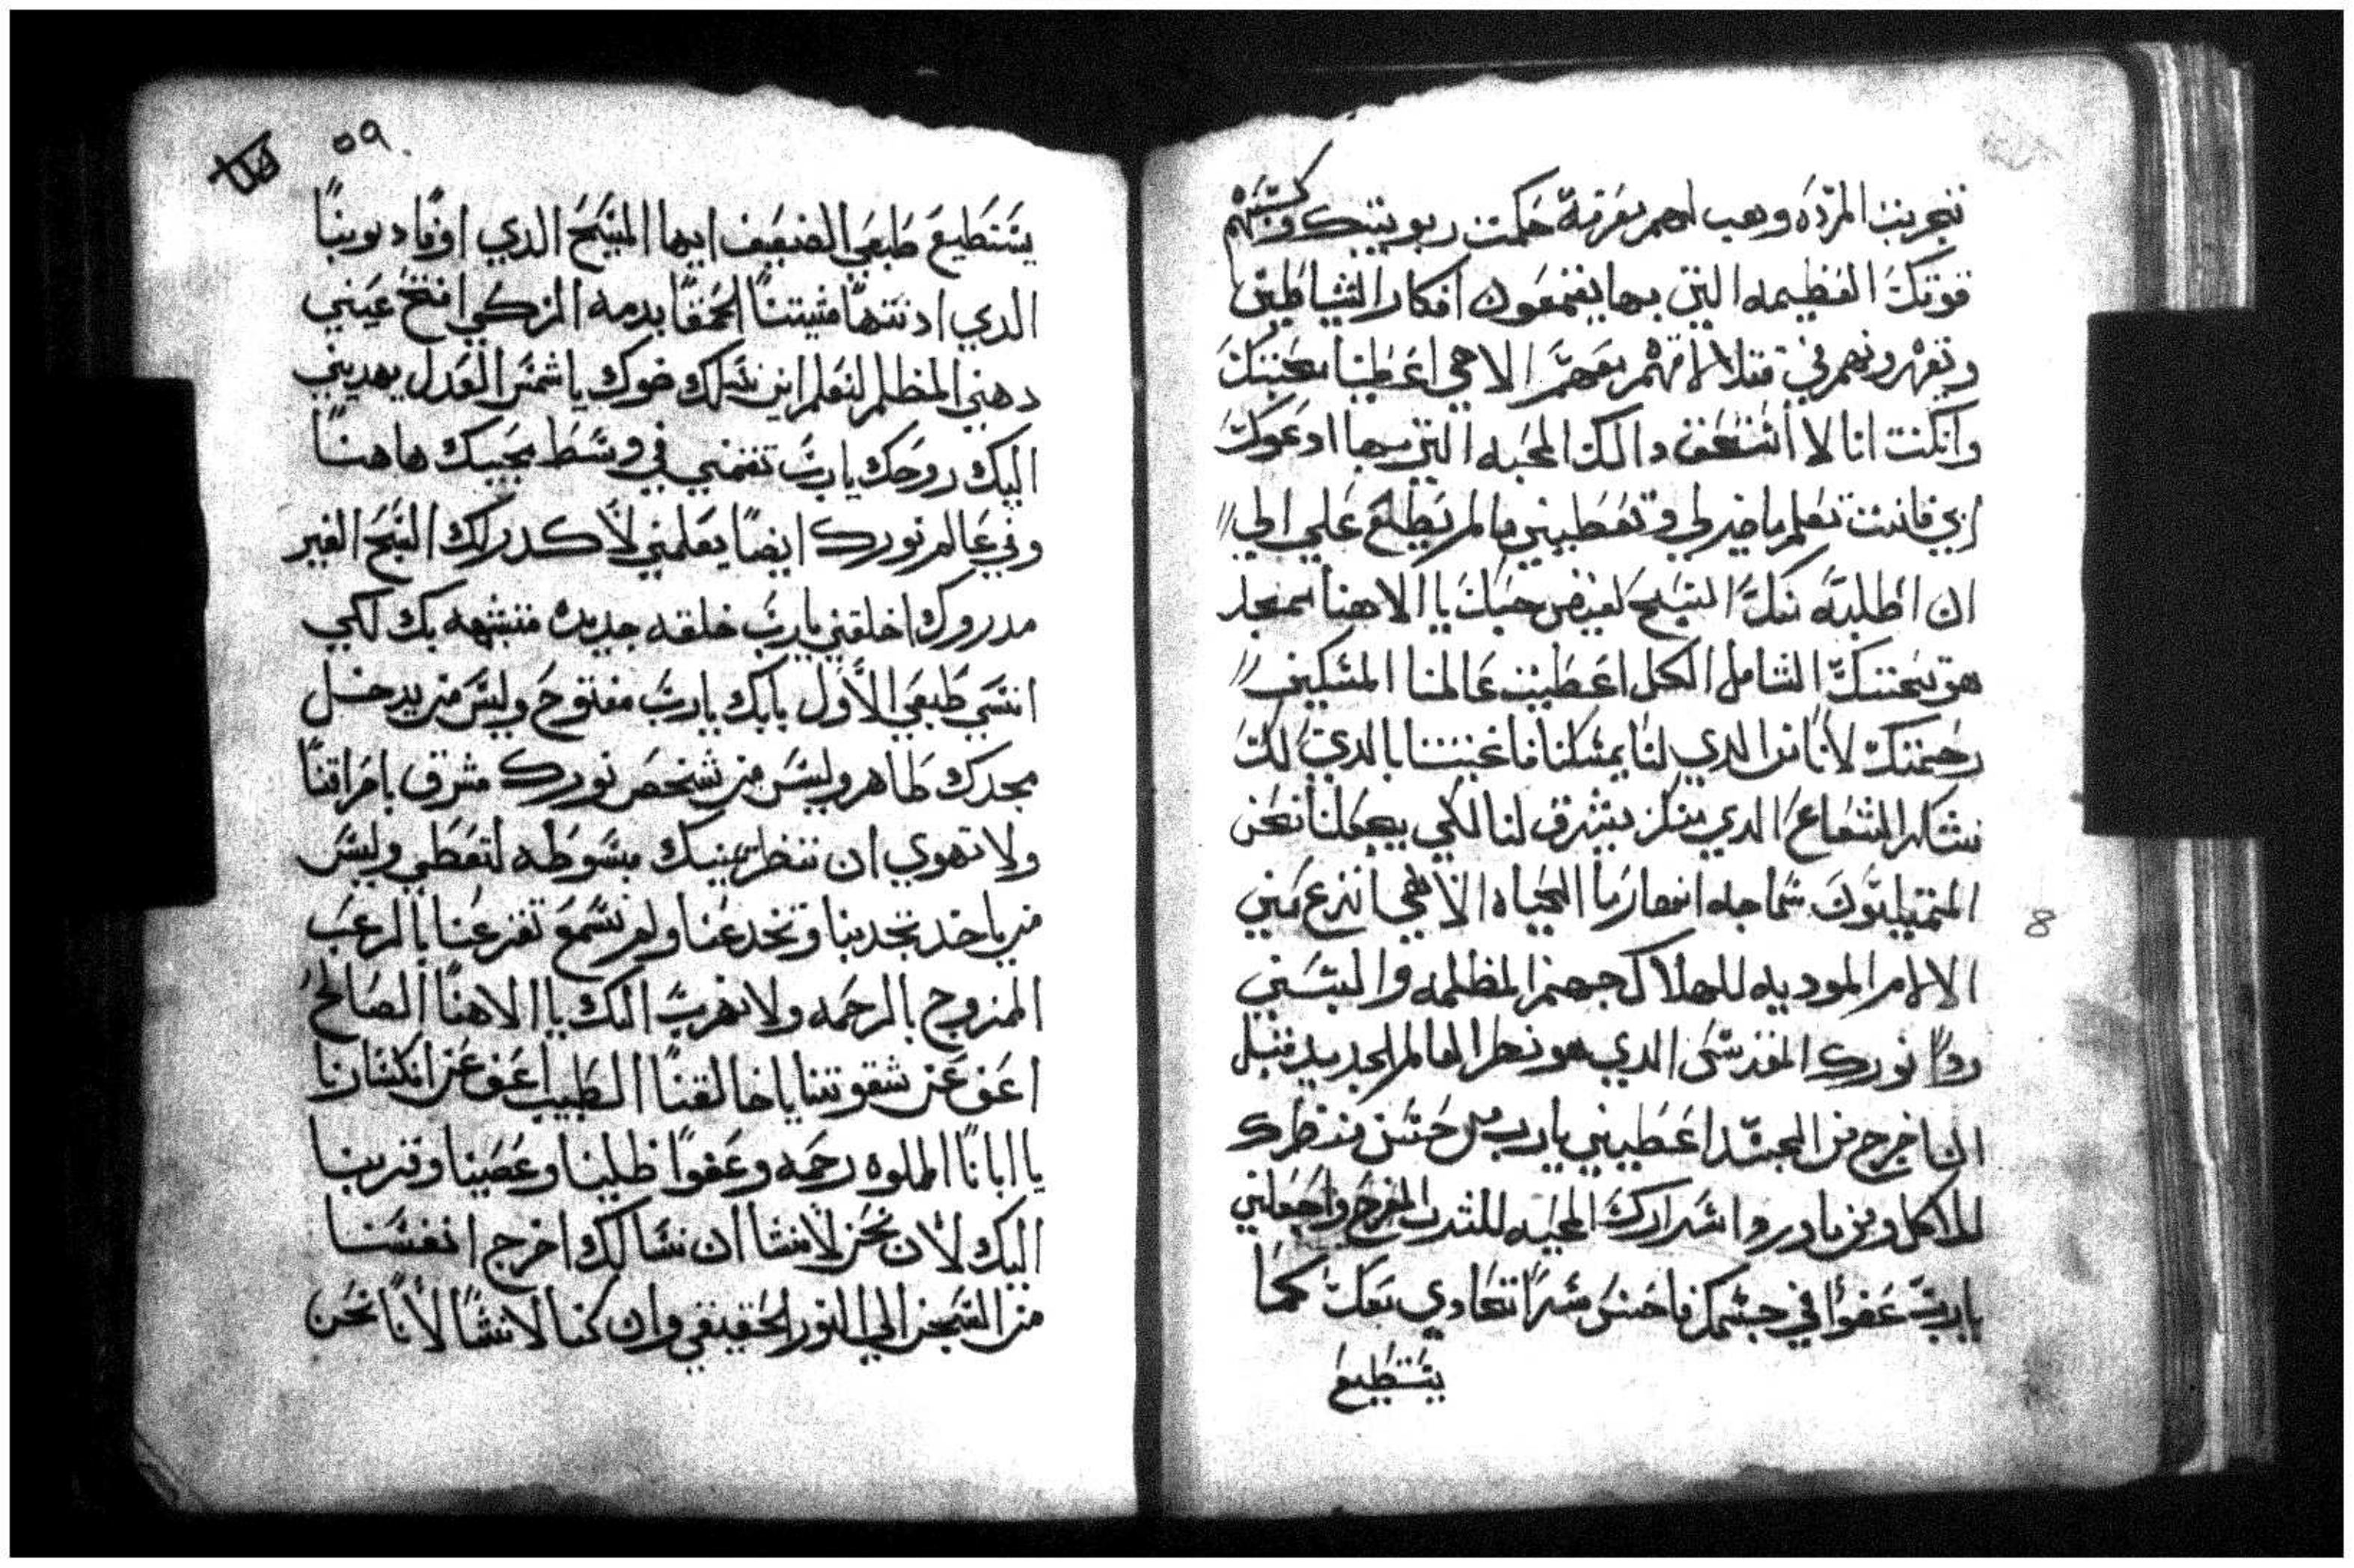 تجربت المرّده وهب لهم معرفة حكمت ربوبيتك وكسّبهم
قوتك العظيمه التي بها يقمعون افكار الشياطين
ويقهرونهم في قتلا الاهي اعطينا محبتك
وانكنت انا لا استحق دالك المحبه التي بها ادعوك
ابي فانت تعلم ما خير لي وتعطيني مالم يطلع علي الي
ان اطلبه منك المسيح لفيض حبك يا الاهنا
هو تحننك الشامل الكل اعطيت عالمنا المسكين
رحمتك لاناس الدي لنا يمسكنا فاغنيتنا بالدي لك
نشكر الشعاع الدي منك يشرق لنا لكي يجعلنا نحن
سماجه الحياه الاهي انزع مني
الالام الموديه للهلاك جهنم المظلمه والبسني
ردا نورك المقدس الدي هو العالم الجديد قبل
ان اخرج من الجسد اعطيني يارب حسن منظرك
للاكل ومن ما وروا اسرارك المحييه للشرب المفرح واجعلني
يارب عضوا في جسمك فاحس سرا اتحادي بك كما
يستطيع
٥٩
يستطيع طبعي الضعيف ايها المسيح الدي اوفا ديوننا
الدي ادنتها مشيتنا الحمقا بدمه الزكي افتح عيني
دهني المظلم لنعلم اين نسلك ضوك يا شمس العدل يهديني
اليك روحك يارب تفهمني في وسط مجيك هاهنا
وفي عالم نورك ايضا يعلمني لاكد راك الشبح الغير
مدروك اخلقني يارب خلقه جديده متشبهه بك لكي
انسي طبعي الاول بابك يارب مفتوح وليس من يدخل
مجدك ظاهر وليس من شخص نورك مشرق باحراقنا
ولا نهوي ان ننظر يمينك مبسوطه لتعطي وليس
من ياخد تجدبنا وتخدعنا ولم نسمع تفزعنا بالرعب
الممزوج بالرحمه ولا نهرب اليك يا الاهنا الصالح
اعف عن شقوتنا يا خالقنا الطبيب اعف عن انكسارنا
يا ابانا المملوه رحمه وعفوا ظلينا وعصينا وقربنا
اليك لان نحن لا نشا ان نسالك اخرج انفسنا
من السجن الي النور الحقيقي وان كنا لا نشا لانا نحن
8